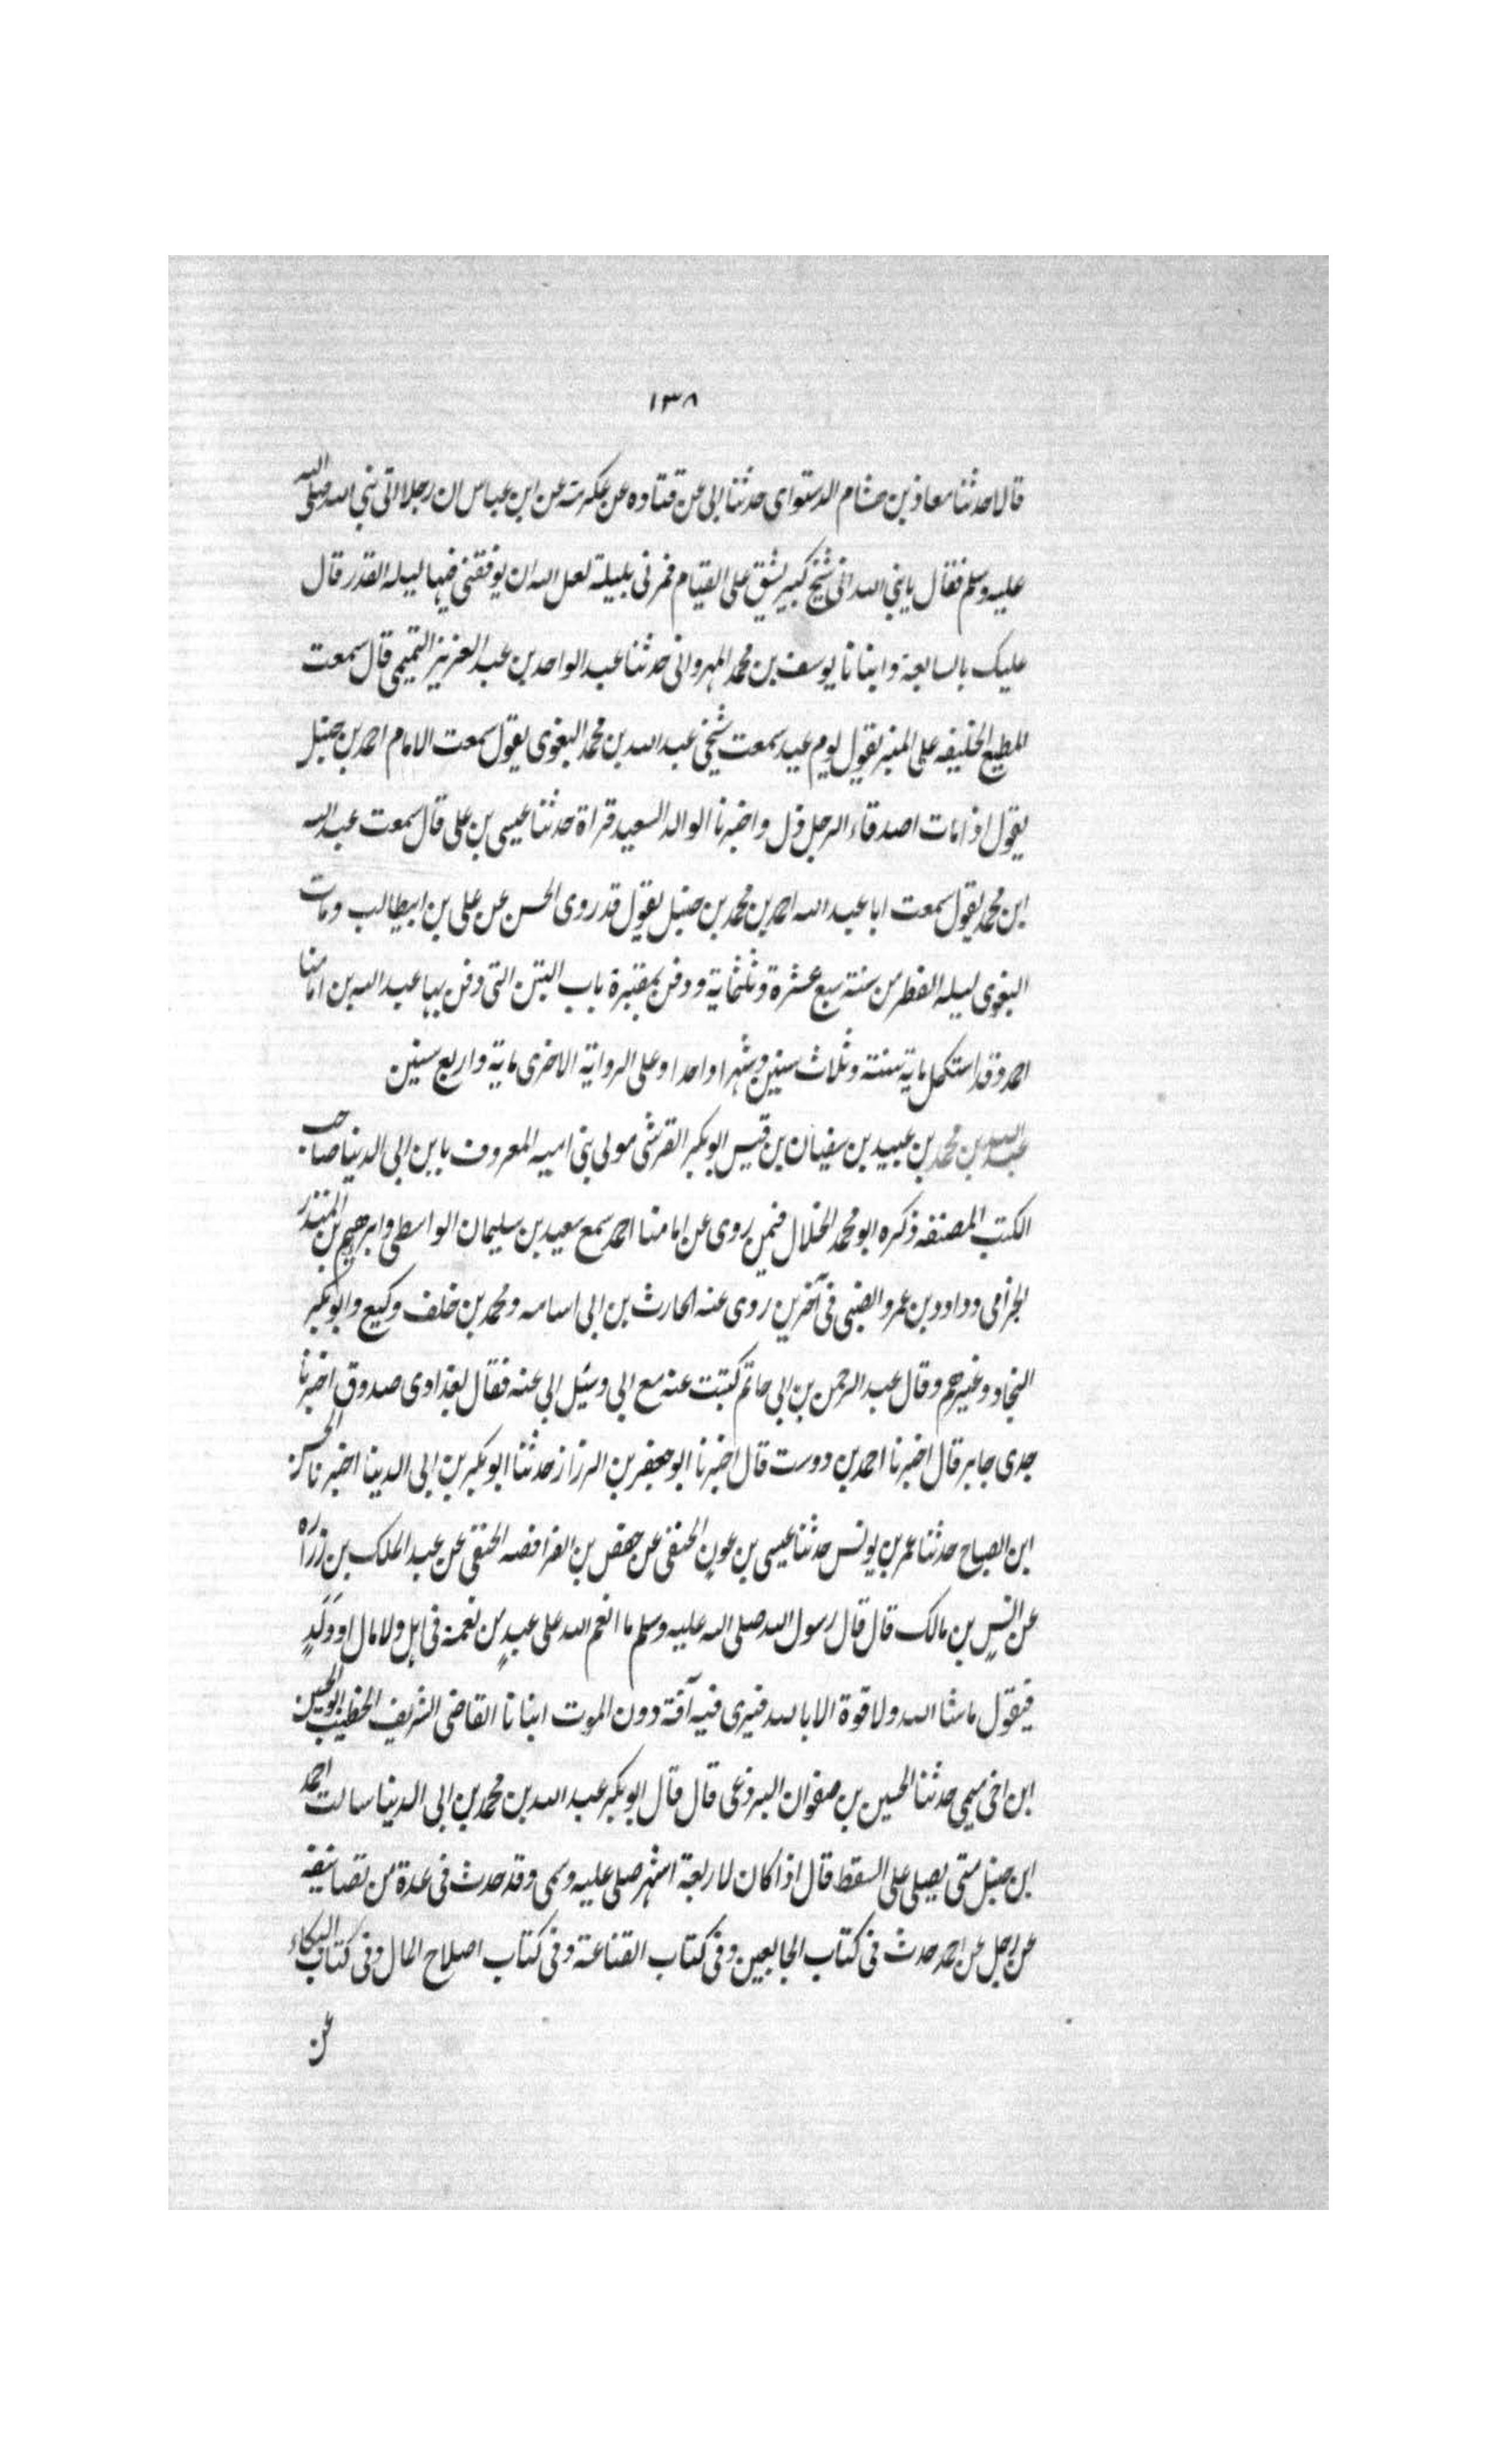 ١٣٨
قالا حدثنا معاذ بن هشام الدستوای حدثنا ابی عن قتاده عن عکرمة عن ابن عباس ان رجلا اتی نبی الله صلی الله
علیه وسلم فقال یا نبی الله انی شیخ کبیر یشق علی القیام فمرنی بلیلة لعل الله ان یوفقنی فیها لیله القدر قال
علیک بالسابعة وانبانا یوسف بن محمد المهروانی حدثنا عبد الواحد بن عبد العزیز التمیمی قال سمعت
المطیع الخلیفه علی المنبر یقول یوم عید سمعت شیخی عبد الله بن محمد البغوی یقول سمعت الامام احمد بن حنبل
یقول اذا مات اصدقاء الرجل ذل واخبرنا الوالد السعید قراة حدثنا عیسی بن علی قال سمعت عبد الله
ابن محمد یقول سمعت ابا عبد الله احمد بن محمد بن حنبل یقول قد روی الحسن عن علی بن ابیطالب ومات
البغوی لیله الفطر من سنة سبع عشرة وثلثمایة ودفن بمقبرة باب التبن التی دفن بها عبد الله بن امامنا
احمد وقد استکمل مایة سنة وثلاث سنین وشهرا واحدا وعلی الروایة الاخری مایة واربع سنین
عبد الله بن محمد بن عبید بن سفیان بن قیس ابو بکر القرشی مولی بنی امیه المعروف بابن ابی الدنیا صاحب
الکتب المصنفه ذکره ابو محمد الخلال فیمن روی عن امامنا احمد سمع سعید بن سلیمان الواسطی وابرهیم بن المنذر
الجزامی وداود بن عمرو الضبی فی آخرین روی عنه الحارث بن ابی اسامه ومحمد بن خلف وکیع وابو بکر
النجاد وغیرهم وقال عبد الرحمن بن ابی حاتم کتبت عنه مع ابی وسئل ابی عنه فقال بغدادی صدوق اخبرنا
جدی جابر قال اخبرنا احمد بن دوست قال اخبرنا ابو جعفر بن الرزاز حدثنا ابو بکر بن ابی الدنیا اخبرنا الحسن
ابن الصباح حدثنا عمر بن یونس حدثنا عیسی بن عون الحنفی عن حفص بن الفرافصه الحنفی عن عبد الملک بن زراره
عن انس بن مالک قال قال رسول الله صلی الله علیه وسلم ما انعم الله علی عبدٍ من نعمة فی اهل ولا مال او ولدٍ
فیقول ماشا الله ولا قوة الا بالله فیری فیه آفة دون الموت انبانا القاضی الشریف الخطیب ابو الحسین
ابن اخی میمی حدثنا الحسین بن صفوان البرذعی قال قال ابو بکر عبد الله بن محمد بن ابی الدنیا سالت احمد
ابن حنبل متی یصلی علی السقط قال اذا کان لاربعة اشهر صلی علیه وسمی وقد حدث فی عدة من تصانیفه
عن رجل عن احمد حدث فی کتاب الجایعین وفی کتاب القناعة وفی کتاب اصلاح المال وفی کتاب البکاء
عن